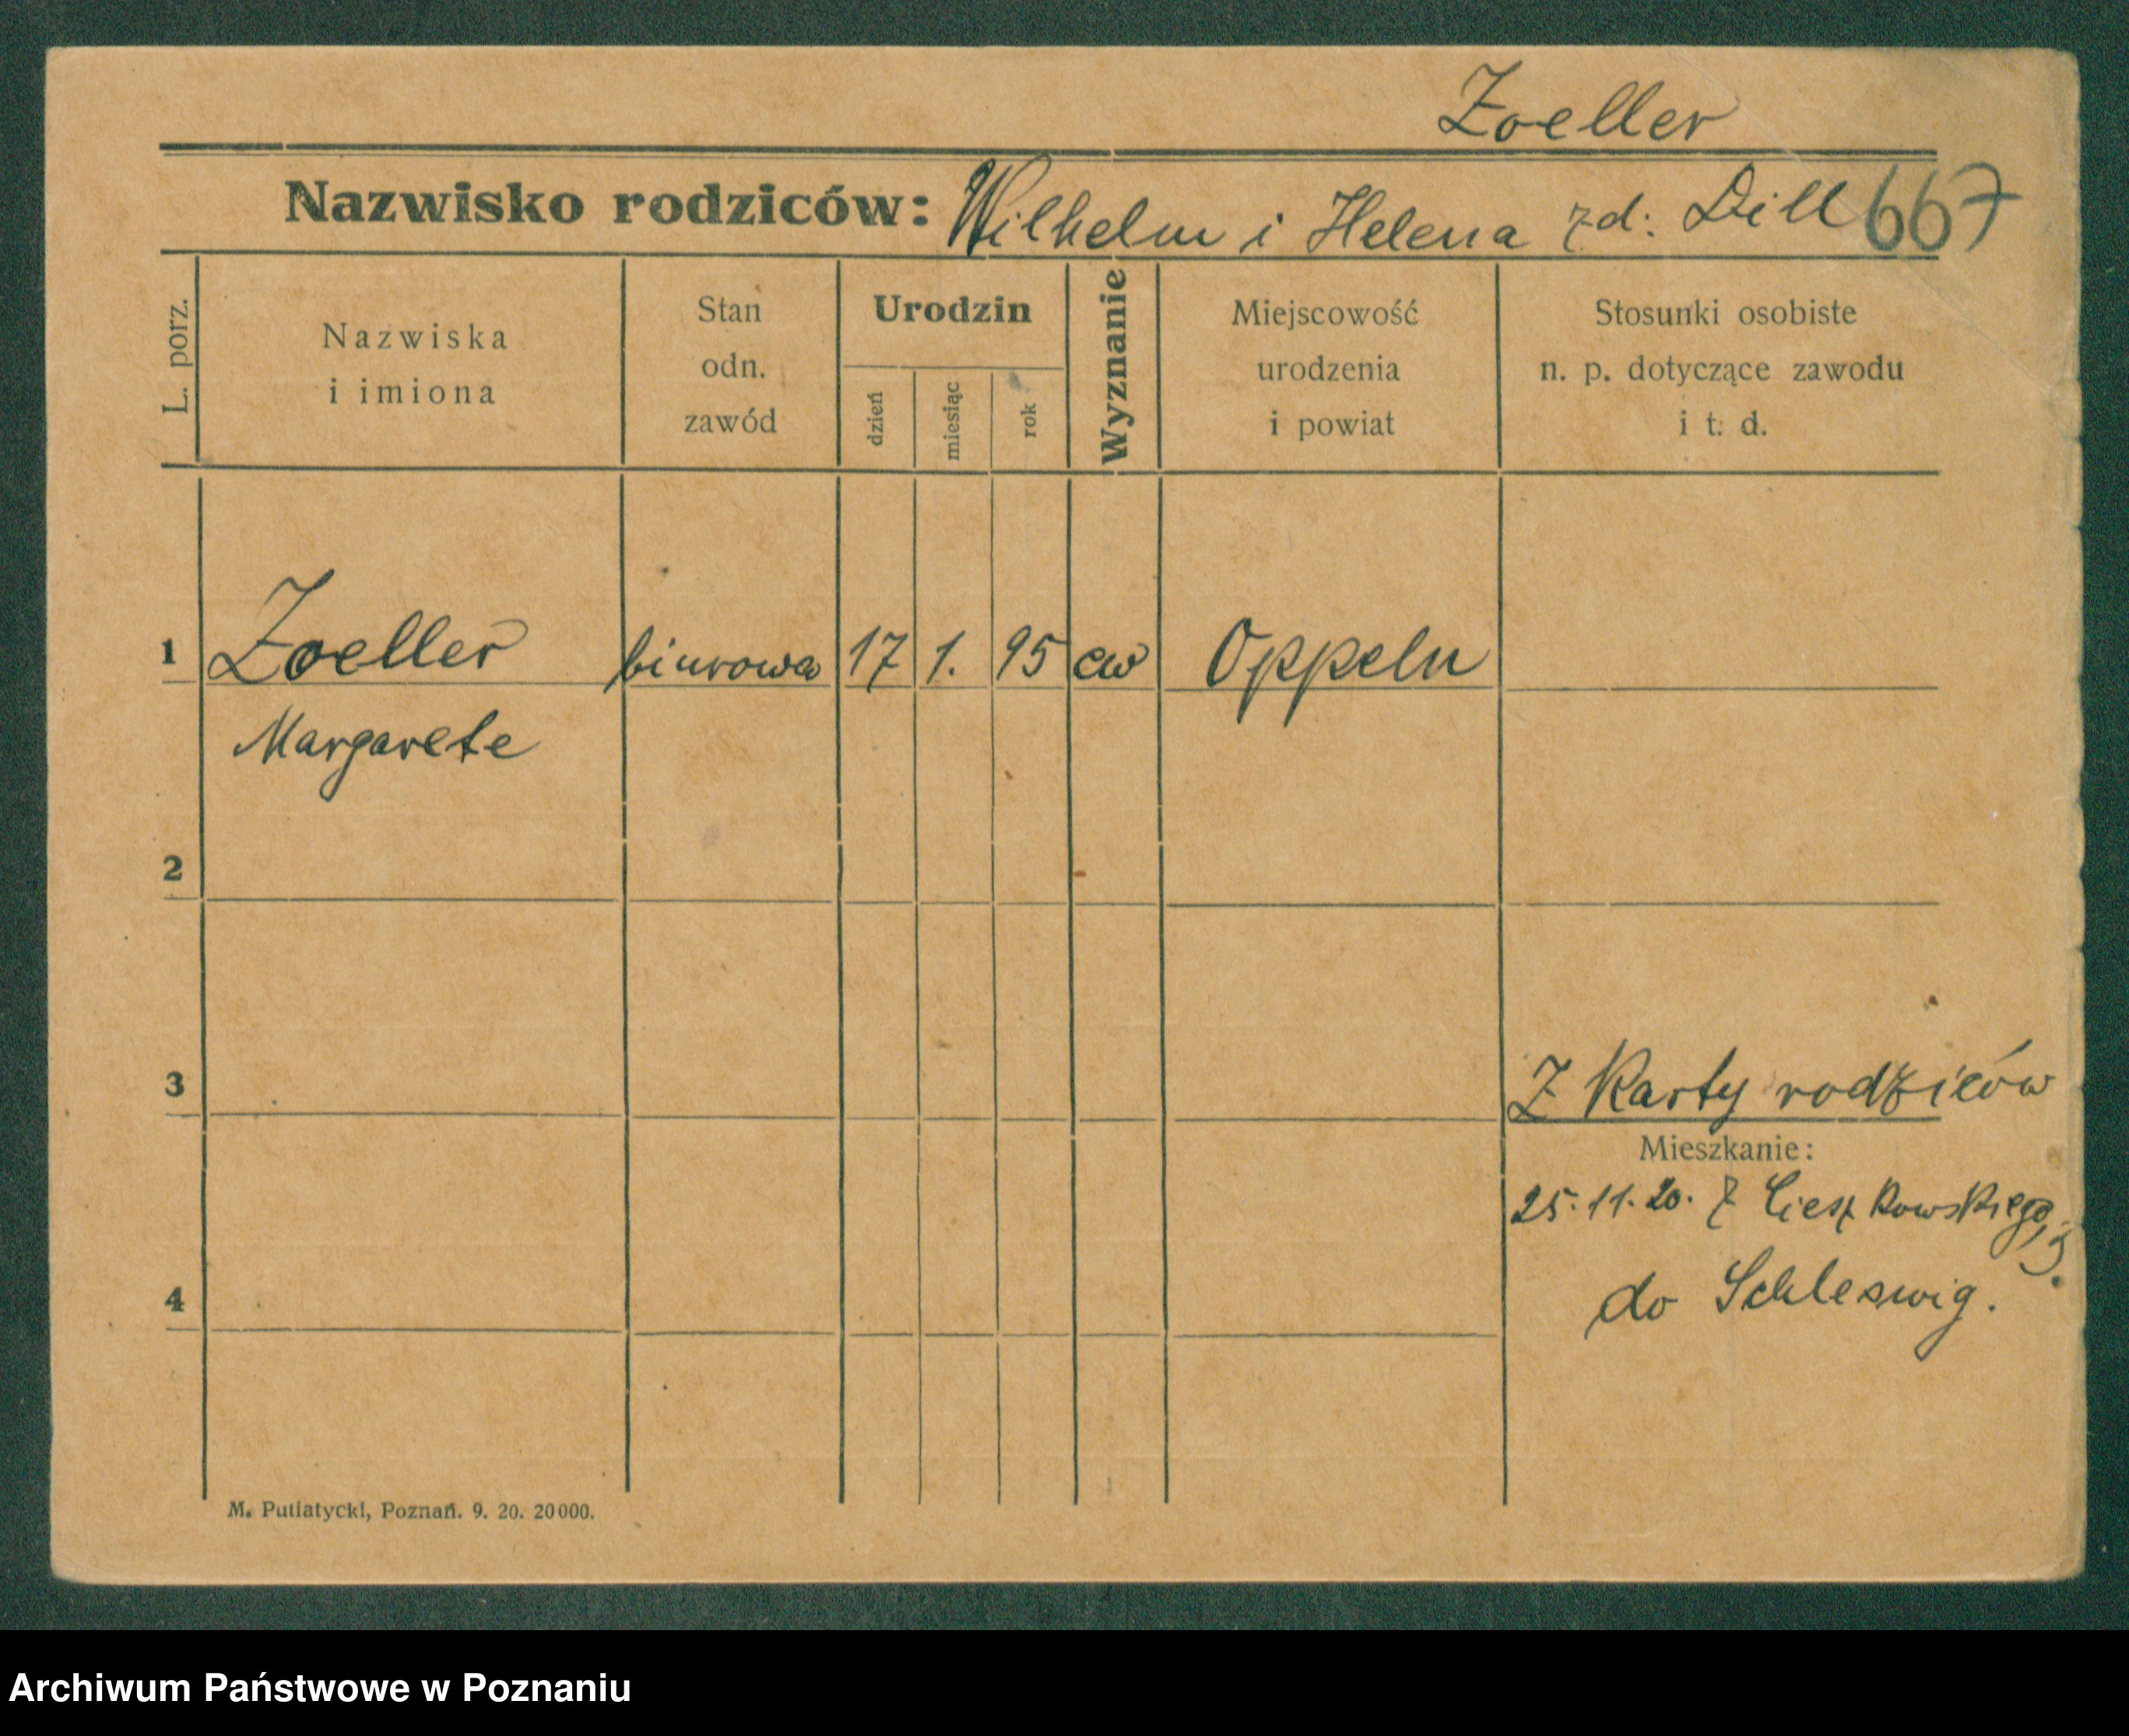 Zoeller
Nazwisko rodziców: Wilhelm i Helena zd: Dill 667
L. porz.
Nazwiska
i imiona
Stan
odn.
zawód
Urodzin
dzień
miesiąc
rok
Wyznanie
Miejscowość
urodzenia
i powiat
Stosunki osobiste
n. p. dotyczące zawodu
i t. d.
1 Zoeller biurowa 17 1. 95 ew Oppeln
Margarete
2
3
Z Karty rodziców
Mieszkanie:
25.11.20. Z Cieszkowskiego,
do Schleswig.
4
M. Putiatycki, Poznań. 9. 20. 20000.
Archiwum Państwowe w Poznaniu